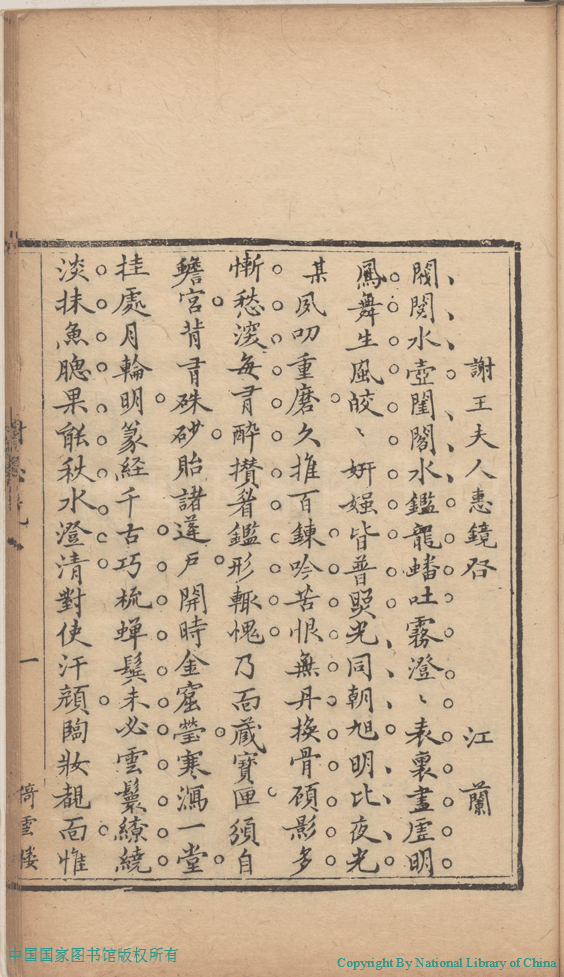 謝王夫人惠鏡啓 江蘭
閥閱水壺閨閣水鑑龍蟠吐霧澄〻表裏盡虛明
鳳舞生風皎〻妍媸皆普照光同朝旭明比夜光
某夙叨重磨久推百鍊吟苦恨無丹換骨碩影多
慚愁深每有醉攢看鑑形輒愧乃而藏寶匣須自
蟾宮背有硃砂貽諸蓬戶開時金窟瑩寒瀉一堂
挂處月輪明篆經千古巧梳蟬鬢未必雲鬟繚繞
淡抹魚腮果能秋水澄清對使汗顏臨妝靦而惟
一
倚雲樓
中国国家图书馆版权所有
Copyright By National Library of China